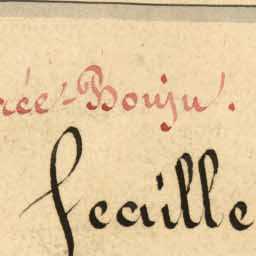 rée-Bouju.
feuille